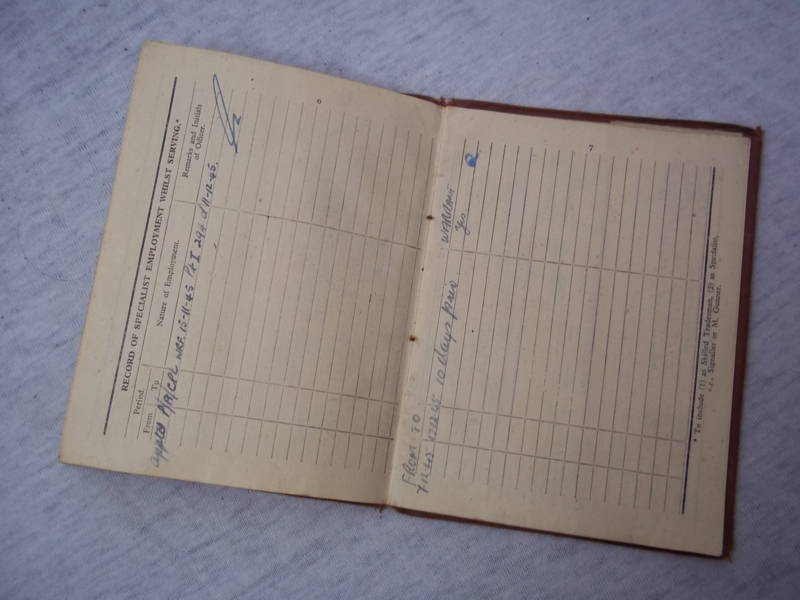 RECORD OF SPECIALIST EMPLOYMENT WHILST SERVING.*
Period.
From To
Nature of Employment.
Remarks and Initials
of Officer.
appted P/A/CPL WEF. 15-11-45 Pt I 294 d/11-12-45.
6
FROM TO
7.12.45 17.12.45 10 days paid
yes
7
* To include (1) as Skilled Tradesman, (2) as Specialist,
e.g., Signaller or M. Gunner.